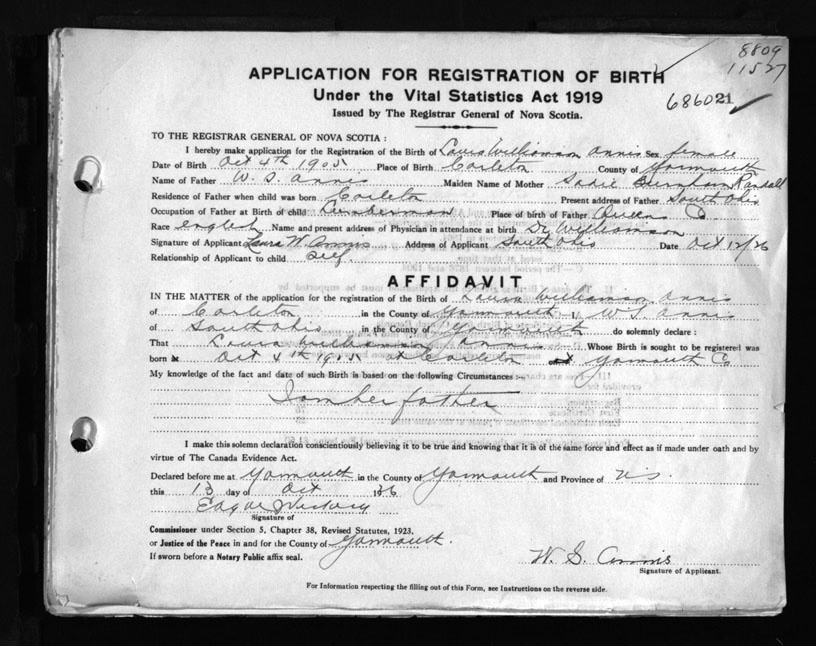 8809
11527
APPLICATION FOR REGISTRATION OF BIRTH
Under the Vital Statistics Act 1919
686021
Issued by The Registrar General of Nova Scotia.
TO THE REGISTRAR GENERAL OF NOVA SCOTIA:
I hereby make application for the Registration of the Birth of Laura Williamson Annis Sex female
Date of Birth Oct 4th 1905 Place of Birth Carleton County of Yarmouth
Name of Father W. S. Annis Maiden Name of Mother Sadie Burnham Randall
Residence of Father when child was born Carleton Present address of Father South Ohio
Occupation of Father at Birth of child Lumberman Place of birth of Father Queens Co
Race English Name and present address of Physician in attendance at birth Dr Williamson
Signature of Applicant Laura W. Annis Address of Applicant South Ohio Date Oct 12/26
Relationship of Applicant to child Self
AFFIDAVIT
IN THE MATTER of the application for the registration of the Birth of Laura Williamson Annis
of Carleton in the County of Yarmouth I W. S. Annis
of South Ohio in the County of Yarmouth do solemnly declare:
That Laura Williamson Annis Whose Birth is sought to be registered was
born Oct 4th 1905 at Carleton Yarmouth Co
My knowledge of the fact and date of such Birth is based on the following Circumstances:
I am her father
I make this solemn declaration conscientiously believing it to be true and knowing that it is of the same force and effect as if made under oath and by
virtue of The Canada Evidence Act.
Declared before me at Yarmouth in the County of Yarmouth and Province of N.S.
this 13 day of Oct 1926
Edgar
Signature of
Commissioner under Section 5, Chapter 38, Revised Statutes, 1923.
or Justice of the Peace in and for the County of Yarmouth.
If sworn before a Notary Public affix seal.
W. S. Annis
Signature of Applicant.
For Information respecting the filling out of this Form, see Instructions on the reverse side.